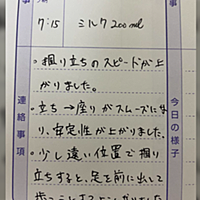 事
7:15 ミルク200ml
事
・掴り立ちのスピードが上
がりました。
・立ち→座りがスムーズにな
り、安定性が上がりました。
・少し遠い位置で掴り
立ちすると、足を前に出して
連絡事項
今日の様子